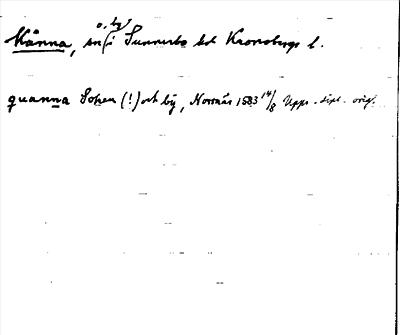 Kånna, sn o. by i Sunnerbo hd Kronobergs l.
quanna Soken (!) och by, Norrnäs 1583 14/8 Upps. dipl. orig.